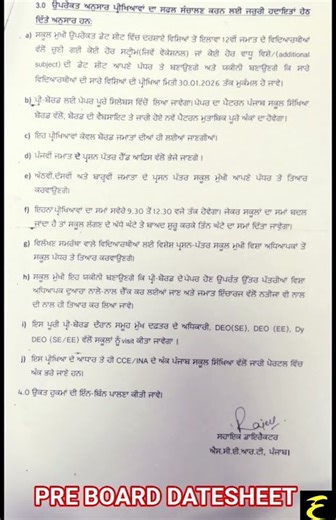 3.0 ਉਪਰੋਕਤ ਅਨੁਸਾਰ ਪ੍ਰੀਖਿਆਵਾਂ ਦਾ ਸਫਲ ਸੰਚਾਲਣ ਕਰਨ ਲਈ ਜਰੂਰੀ ਹਦਾਇਤਾਂ ਹੇਠ
ਦਿੱਤੇ ਅਨੁਸਾਰ ਹਨ:
a) ਸਕੂਲ ਮੁਖੀ ਉਪਰੋਕਤ ਡੇਟ ਸ਼ੀਟ ਵਿੱਚ ਦਰਸਾਏ ਵਿਸ਼ਿਆਂ ਤੋਂ ਇਲਾਵਾ 12ਵੀਂ ਜਮਾਤ ਦੇ ਵਿਦਿਆਰਥੀਆਂ
ਵੱਲੋਂ ਚੁਣੀ ਗਈ ਕੋਈ ਹੋਰ ਸਟ੍ਰੀਮ(ਜਿਵੇਂ ਵੋਕੇਸ਼ਨਲ) ਜਾਂ ਕੋਈ ਹੋਰ ਵਾਧੂ ਵਿਸ਼ੇ/(additional
subject) ਦੀ ਡੇਟ ਸ਼ੀਟ ਆਪਣੇ ਪੱਧਰ ਤੇ ਬਣਾਉਣਗੇ ਅਤੇ ਯਕੀਨੀ ਬਣਾਉਣਗੇ ਕਿ ਸਾਰੇ
ਵਿਦਿਆਰਥੀਆਂ ਦੀ ਸਾਰੇ ਵਿਸ਼ਿਆਂ ਦੀ ਪ੍ਰੀਖਿਆ ਮਿਤੀ 30.01.2026 ਤੱਕ ਮੁਕੰਮਲ ਹੋ ਜਾਵੇ।
b) ਪ੍ਰੀ-ਬੋਰਡ ਲਈ ਪੇਪਰ ਪੂਰੇ ਸਿਲੇਬਸ ਵਿੱਚੋਂ ਲਿਆ ਜਾਵੇਗਾ। ਪੇਪਰ ਦਾ ਪੈਟਰਨ ਪੰਜਾਬ ਸਕੂਲ ਸਿੱਖਿਆ
ਬੋਰਡ ਵੱਲੋਂ, ਬੋਰਡ ਦੀ ਵੈਬਸਾਇਟ ਤੇ ਜਾਰੀ ਹੋਏ ਨਵੇਂ ਪੈਟਰਨ ਮੁਤਾਬਿਕ ਪੂਰੇ ਅੰਕਾਂ ਦਾ ਹੋਵੇਗਾ।
c) ਇਹ ਪ੍ਰੀਖਿਆਵਾਂ ਕੇਵਲ ਬੋਰਡ ਜਮਾਤਾਂ ਦੀਆਂ ਹੀ ਲਈਆਂ ਜਾਣਗੀਆਂ।
d) ਪੰਜਵੀਂ ਜਮਾਤ ਦੇ ਪ੍ਰਸ਼ਨ ਪੱਤਰ ਹੈੱਡ ਆਫਿਸ ਵੱਲੋਂ ਭੇਜੇ ਜਾਣਗੇ।
e) ਅੱਠਵੀਂ,ਦਸਵੀਂ ਅਤੇ ਬਾਰ੍ਹਵੀਂ ਜਮਾਤਾਂ ਦੇ ਪ੍ਰਸ਼ਨ ਪੱਤਰ ਸਕੂਲ ਮੁੱਖੀ ਆਪਣੇ ਪੱਧਰ ਤੇ ਤਿਆਰ
ਕਰਵਾਉਣਗੇ।
f) ਇਹਨਾਂ ਪ੍ਰੀਖਿਆਵਾਂ ਦਾ ਸਮਾਂ ਸਵੇਰੇ 9.30 ਤੋਂ 12.30 ਵਜੇ ਤੱਕ ਹੋਵੇਗਾ। ਜੇਕਰ ਸਕੂਲਾਂ ਦਾ ਸਮਾਂ ਬਦਲ
ਜਾਂਦਾ ਹੈ ਤਾਂ ਸਕੂਲ ਲੱਗਣ ਦੇ ਅੱਧੇ ਘੰਟੇ ਤੋਂ ਬਾਅਦ ਸ਼ੁਰੂ ਕਰਕੇ ਤਿੰਨ ਘੰਟੇ ਦਾ ਸਮਾਂ ਦਿੱਤਾ ਜਾਵੇਗਾ।
g) ਵਿਲੱਖਣ ਸਮਰੱਥਾ ਵਾਲੇ ਵਿਦਿਆਰਥੀਆਂ ਲਈ ਵਿਸ਼ੇਸ਼ ਪ੍ਰਸ਼ਨ-ਪੱਤਰ ਸਕੂਲ ਮੁਖੀ ਵਿਸ਼ਾ ਅਧਿਆਪਕਾਂ ਤੋਂ
ਸਕੂਲ ਪੱਧਰ ਤੇ ਤਿਆਰ ਕਰਵਾਉਣਗੇ।
h) ਸਕੂਲ ਮੁਖੀ ਇਹ ਯਕੀਨੀ ਬਣਾਉਣਗੇ ਕਿ ਪ੍ਰੀ-ਬੋਰਡ ਦੇ ਪੇਪਰ ਹੋਣ ਉਪਰੰਤ ਉੱਤਰ ਪੱਤਰੀਆਂ ਵਿਸ਼ਾ
ਅਧਿਆਪਕ ਦੁਆਰਾ ਨਾਲੋ-ਨਾਲ ਚੈੱਕ ਕਰ ਲਈਆਂ ਜਾਣ ਅਤੇ ਜਮਾਤ ਇੰਚਾਰਜ ਵੱਲੋਂ ਨਤੀਜਾ ਵੀ ਨਾਲ
ਦੀ ਨਾਲ ਹੀ ਤਿਆਰ ਕਰ ਲਿਆ ਜਾਵੇ।
i) ਇਸ ਪੂਰੀ ਪ੍ਰੀ-ਬੋਰਡ ਦੌਰਾਨ ਸਮੂਹ ਮੁੱਖ ਦਫਤਰ ਦੇ ਅਧਿਕਾਰੀ, DEO(SE), DEO (EE), Dy
DEO (SE/EE) ਵੱਲੋਂ ਸਕੂਲਾਂ ਨੂੰ visit ਕੀਤਾ ਜਾਵੇਗਾ।
j) ਇਸ ਪ੍ਰੀਖਿਆ ਦੇ ਆਧਾਰ ਤੇ ਹੀ CCE/INA ਦੇ ਅੰਕ ਪੰਜਾਬ ਸਕੂਲ ਸਿੱਖਿਆ ਵੱਲੋਂ ਜਾਰੀ ਪੋਰਟਲ ਵਿੱਚ
ਅੰਕ ਭਰੇ ਜਾਣੇ ਹਨ।
4.0 ਉਕਤ ਹੁਕਮਾਂ ਦੀ ਇੰਨ-ਬਿੰਨ ਪਾਲਣਾ ਕੀਤੀ ਜਾਵੇ।
ਸਹਾਇਕ ਡਾਇਰੈਕਟਰ
ਐਸ.ਸੀ.ਈ.ਆਰ.ਟੀ, ਪੰਜਾਬ।
PRE BOARD DATESHEET